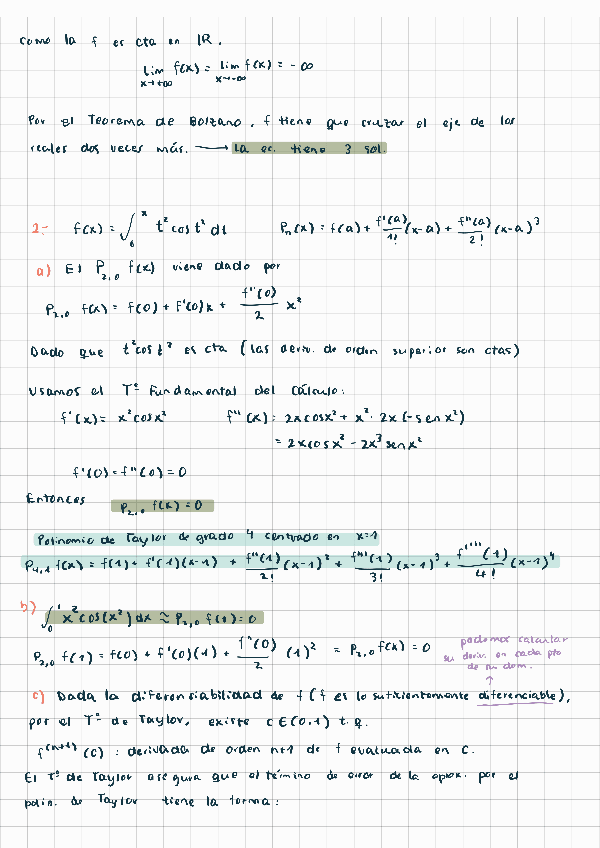 como la f es cta en IR.
lim f(x) = lim f(x) = - ∞
x→+∞ x→-∞
Por el Teorema de Bolzano, f tiene que cruzar el eje de los
reales dos veces más. → La ec. tiene 3 sol.
2.- f(x) = ∫₆ˣ t² cos t² dt Pn(x) = f(a) + f'(a)/1! (x-a) + f''(a)/2! (x-a)³
a) El P₂,₀ f(x) viene dado por
P₂,₀ f(x) = f(0) + f'(0)x + f''(0)/2 x²
Dado que t² cos t² es cta (las deriv. de orden superior son ctas)
Usamos el Tª Fundamental del Cálculo:
f'(x) = x² cos x² f''(x) : 2x cos x² + x² · 2x (- sen x²)
= 2x cos x² - 2x³ sen x²
f'(0) = f''(0) = 0
Entonces P₂,₀ f(x) = 0
Polinomio de Taylor de grado 4 centrado en x=1
P₄,₁ f(x) = f(1) + f'(1)(x-1) + f''(1)/2! (x-1)² + f'''(1)/3! (x-1)³ + f''''(1)/4! (x-1)⁴
b) ∫₀¹ x² cos(x²) dx ≈ P₂,₀ f(1) = 0
P₂,₀ f(1) = f(0) + f'(0)(1) + f''(0)/2 (1)² = P₂,₀ f(x) = 0
podemos calcular
su deriv. en cada pto
de su dom.
↑
c) Dada la diferenciabilidad de f (f es lo suficientemente diferenciable),
por el Tª de Taylor, existe c ∈ (0,1) t.q.
f⁽ⁿ⁺¹⁾ (c) : derivada de orden n+1 de f evaluada en c.
El Tª de Taylor asegura que el término de error de la aprox. por el
polin. de Taylor tiene la forma: